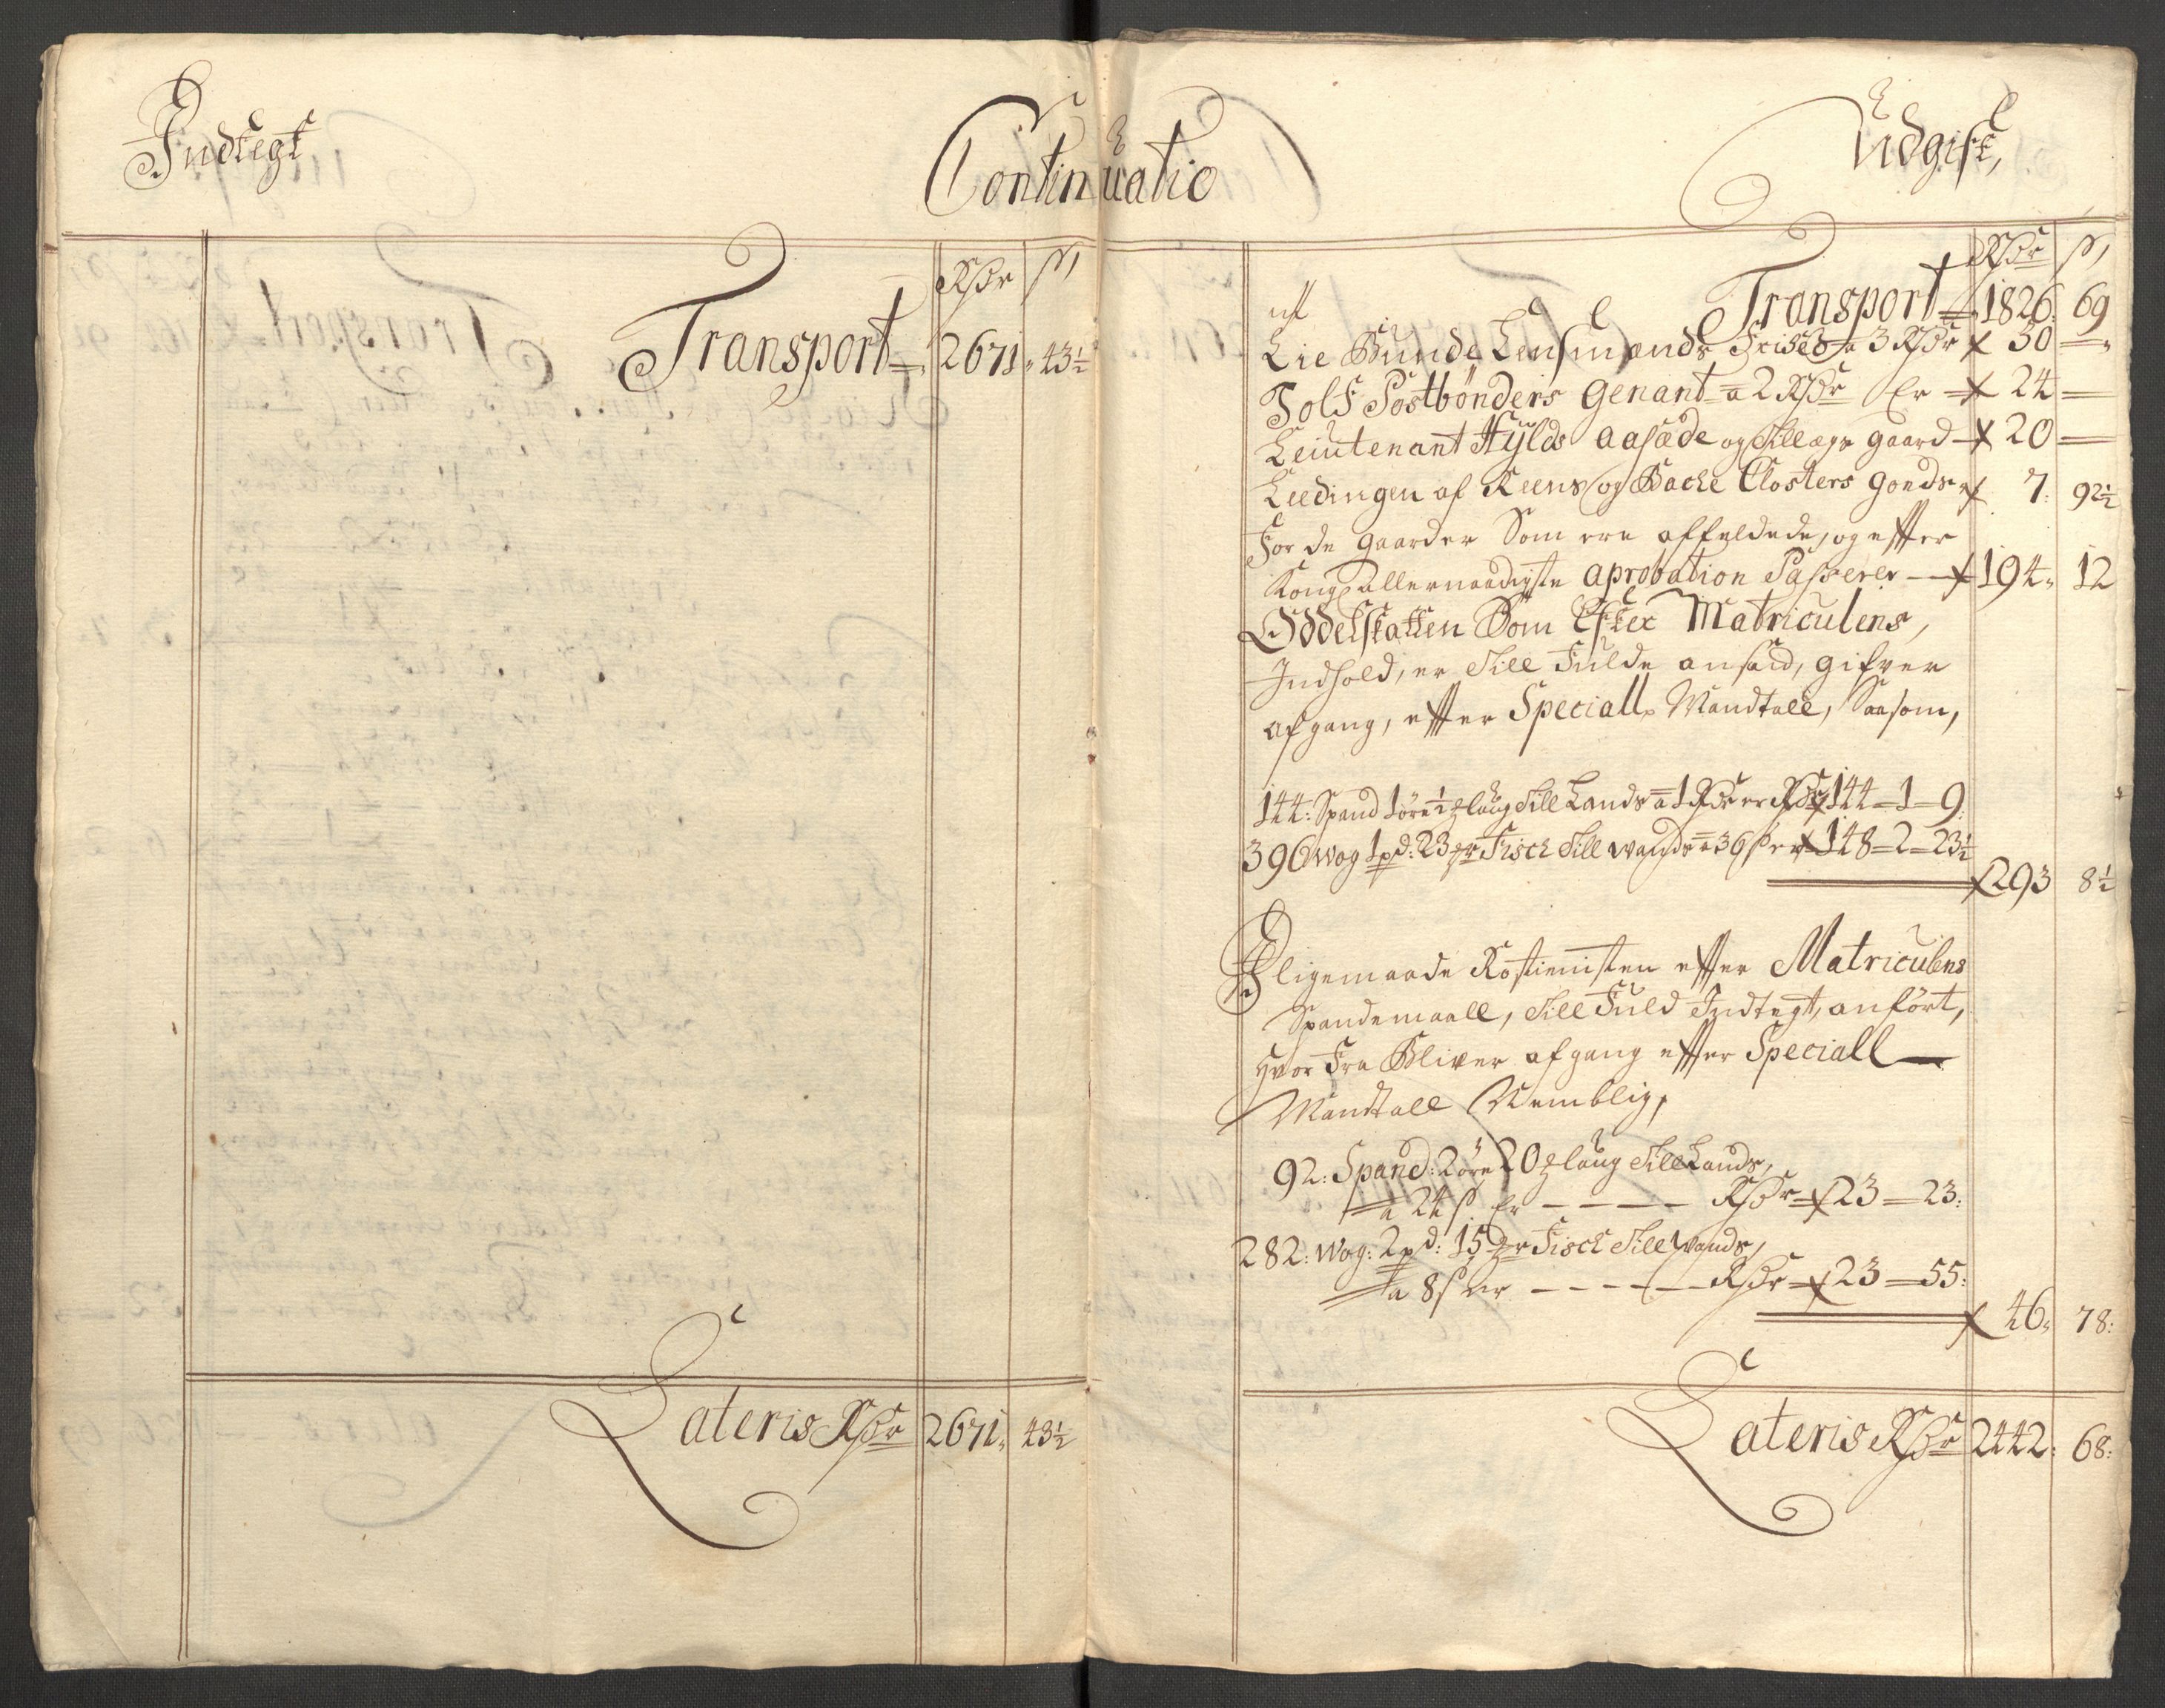 Indtegt
Continuatio
Udgift,
Rdr ß
Transport 2671 43½
Lateris Rdr 2671 43½
Rdr ß
Transport 1826 69
Bunde Lensmends Friheds a 3 Rdr 30 —
Tolf Postbönders Genant a 2 Rdr Er 24 —
Leiutenant Hylds aasæde og Tillægs gaard 20 —
Leedingen af Reens og Backe Closters Goeds 7: 92½
For de gaarder Som ere affældede, og effter
Kongl allernaadigste aprobation Passerer 194 12
Oddelskatten Som Efter Matriculens,
Indhold, er Till Fulde anført, gifver
afgang, effter Speciall Mandtall, Saasom,
144: Spand 1 öre ½ laug Till Lands a 1 Rdr er Rdr 144-1-9
390 Wog 1 pd: 23 Fisch Till Wands a 36 ß er 148-2-23½
293 8½
Iligemaade Rostienisten effter Matriculens
Spandemaall, Till Fuld Indtegt, anført,
Hvor Fra Bliver afgang effter Speciall
Mandtall Nemblig,
92: Spand: 2 öre 20 laug Till Lands,
a 24 ß Er ---- Rdr 23-23:
282: Wog: 2 pd: 15 Fisch Till Wands,
a 8 ß er ---- Rdr 23-55:
46 78:
Lateris Rdr 2442: 68: